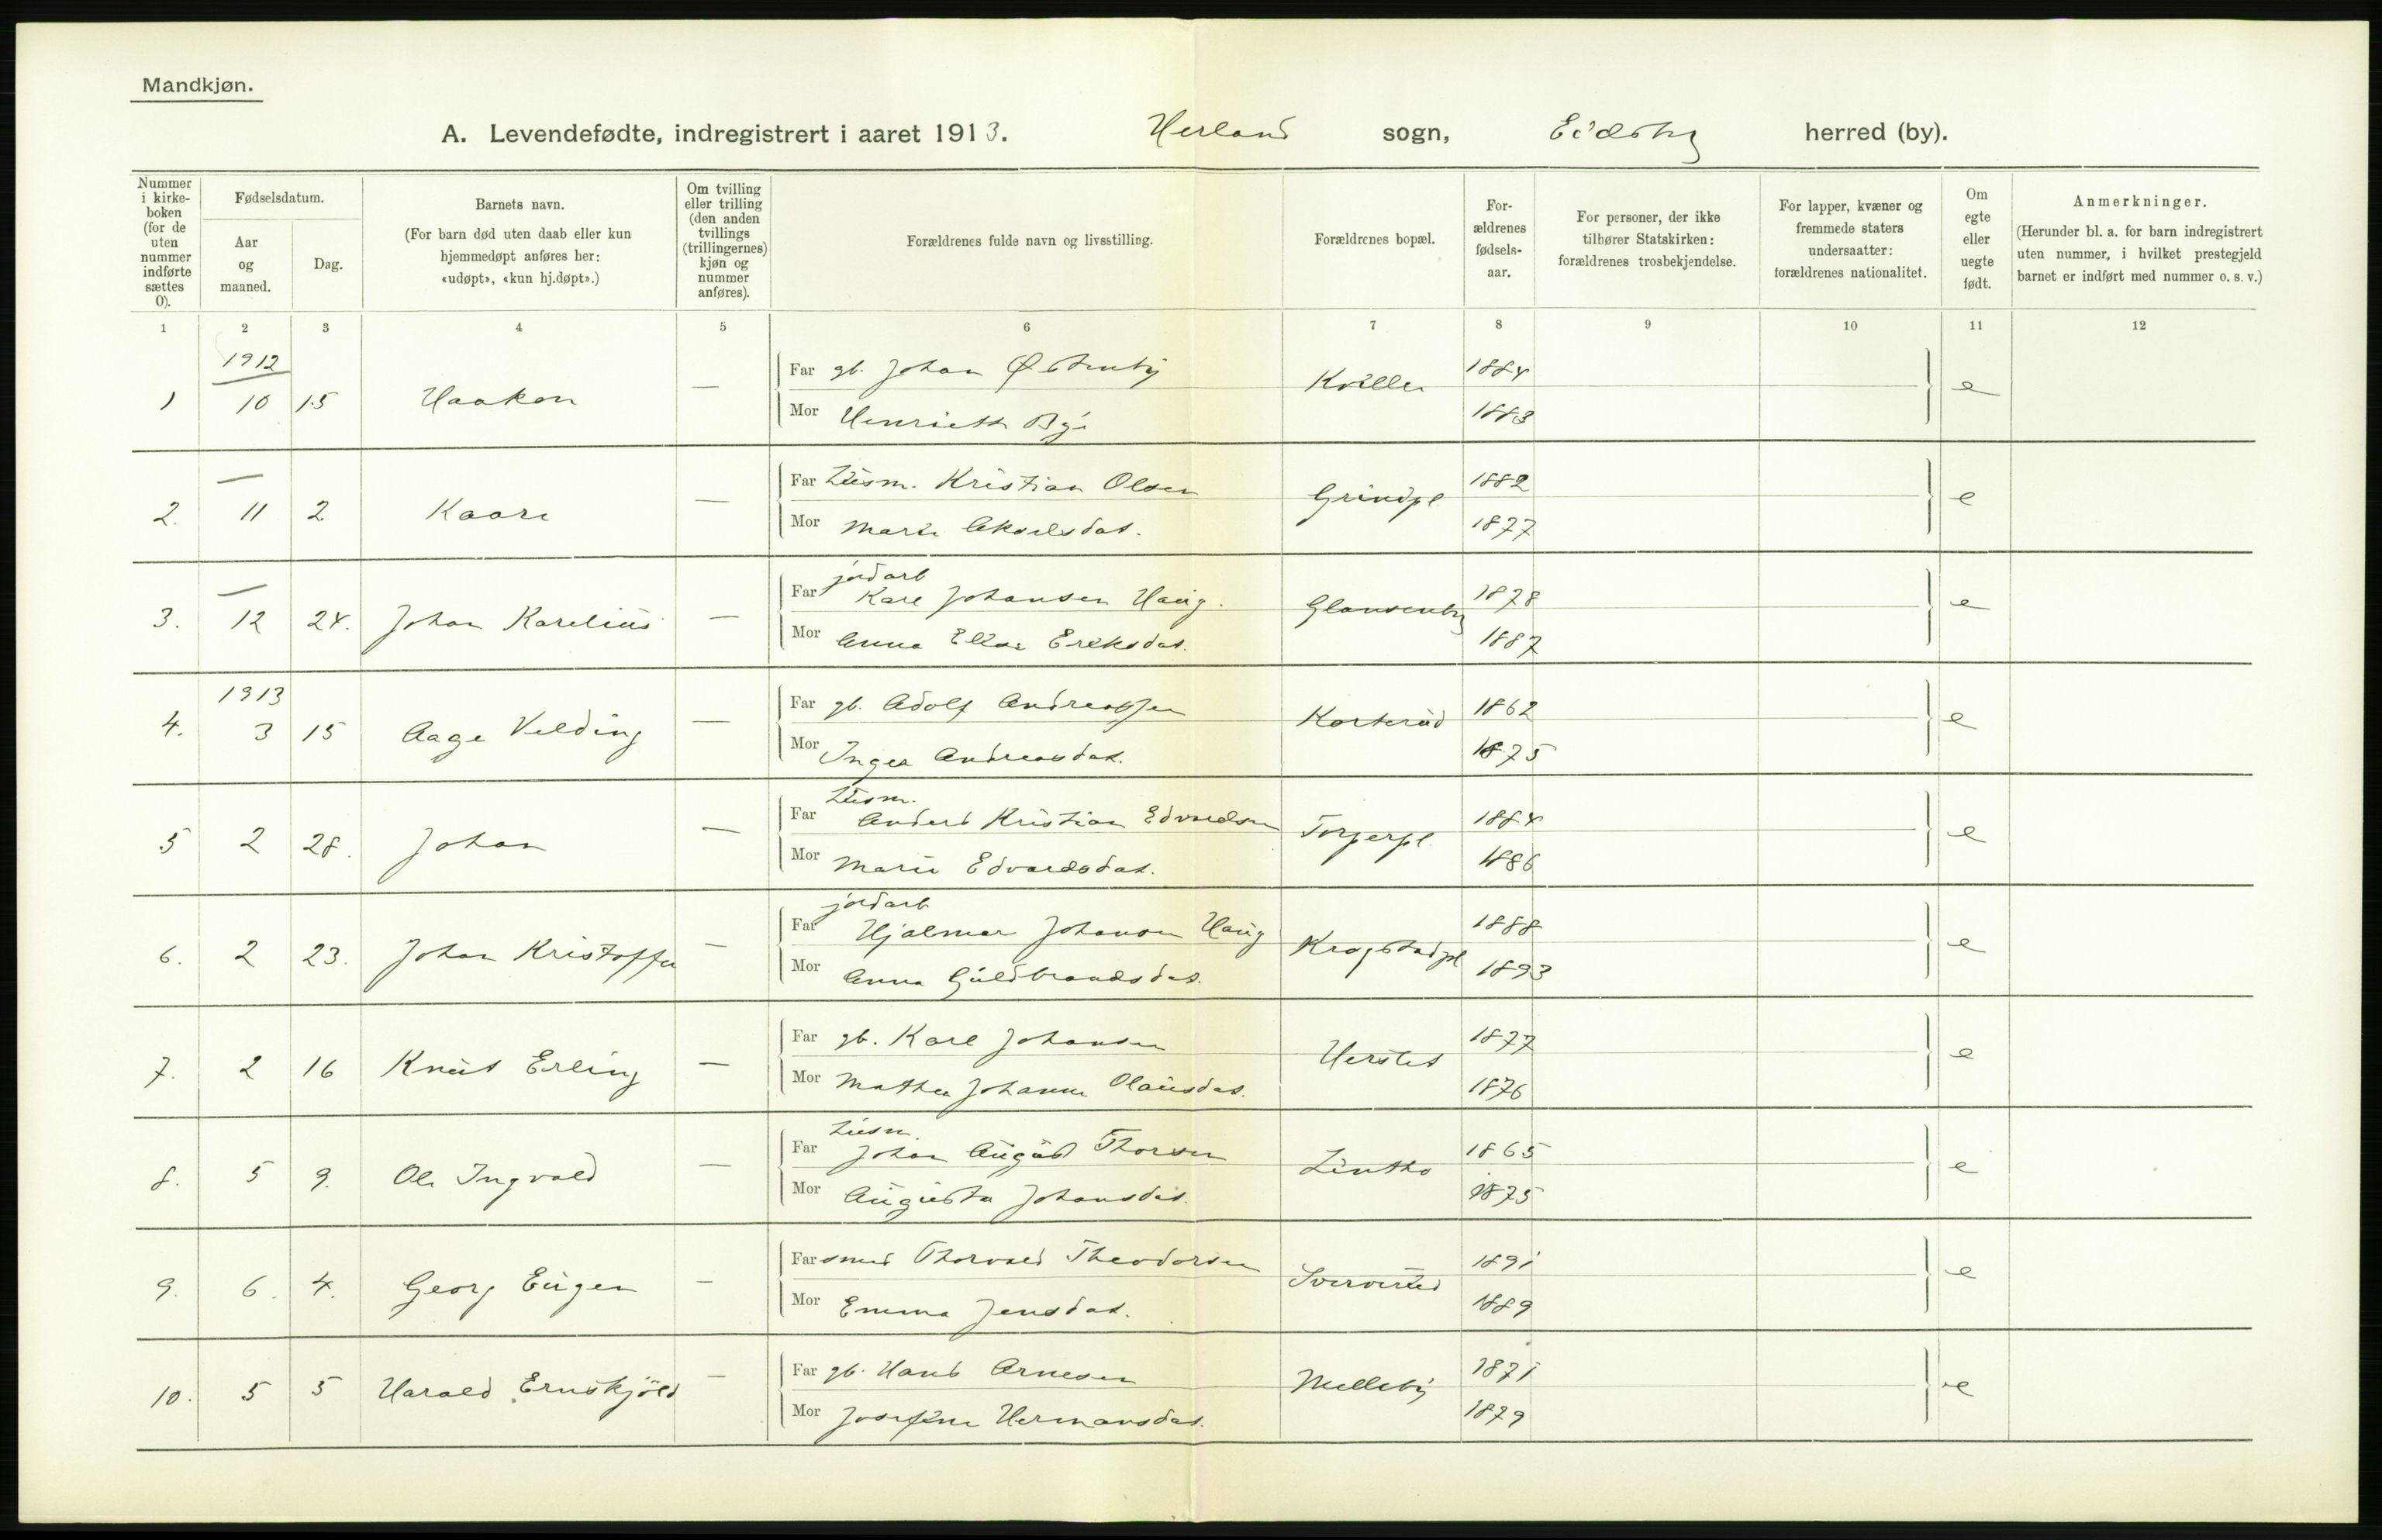 Mandkjøn.
A. Levendefødte, indregistrert i aaret 1913. Herland sogn, Eidsbg herred (by).
Nummer i kirke-boken (for de uten nummer indførte sættes 0).
Fødselsdatum.
Aar og maaned.
Dag.
Barnets navn.
(For barn død uten daab eller kun hjemmedøpt anføres her: «udøpt», «kun hj.døpt».)
Om tvilling eller trilling (den anden tvillings (trillingernes) kjøn og nummer anføres).
Forældrenes fulde navn og livsstilling.
Forældrenes bopæl.
For-ældrenes fødsels-aar.
For personer, der ikke tilhører Statskirken: forældrenes trosbekjendelse.
For lapper, kvæner og fremmede staters undersaatter: forældrenes nationalitet.
Om egte eller uegte født.
Anmerkninger.
(Herunder bl. a. for barn indregistrert uten nummer, i hvilket prestegjeld barnet er indført med nummer o. s. v.)
1 2 3 4 5 6 7 8 9 10 11 12
1912
1 10 15 Haakon — Far gb. Johan Østenby Kviller 1884 e
Mor Henriette Bye 1883
—
2. 11 2 Kaare — Far Husm. Kristian Olsen Grindpl. 1882 e
Mor Marie Akselsdat. 1877
—
jordarb
3. 12 24. Johan Karelius — Far Karl Johansen Haug. Glansenby 1878 e
Mor Anna Elise Eriksdat. 1887
1913
4. 3 15 Aage Velding — Far gb. Adolf Andreassen Korterud 1862 e
Mor Inger Andreasdat. 1875
Husm.
5 2 28. Johan — Far Anders Kristian Edvardsen Torperpl. 1884 e
Mor Marie Edvardsdat. 1886
jordarb
6. 2 23. Johan Kristoffer — Far Hjalmar Johansen Haug Krogstadpl 1888 e
Mor Anna Guldbrandsdat. 1893
7. 2 16 Knut Erling — Far gb. Karl Johansen Hersted 1877 e
Mor Mathea Johanne Olausdat. 1876
Husm.
8. 5 9. Ole Ingvald — Far Johan August Thorsen Lintho 1865 e
Mor Augusta Johansdat. 1875
9. 6. 4. Georg Eugen — Far smed Thorvald Theodorsen 1891 e
Mor Emma Jensdat. 1889
10. 5 5 Harald Ernskjöld — Far gb. Hans Arnesen Melleby 1871 e
Mor Josefine Hermansdat. 1879